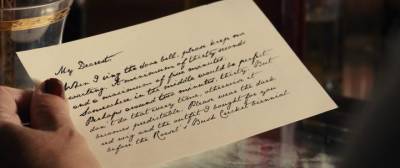 My Dearest.
When I ring the door bell, please keep me
waiting. A minimum of thirty seconds
and a maximum of five minutes.
Somewhere in the middle would be perfect.
Perhaps around two minutes, thirty. But
don't do that every time, otherwise it
becomes predictable. Please wear the dark
red wig and the outfit I bought for you
before the & Cricket biennial.